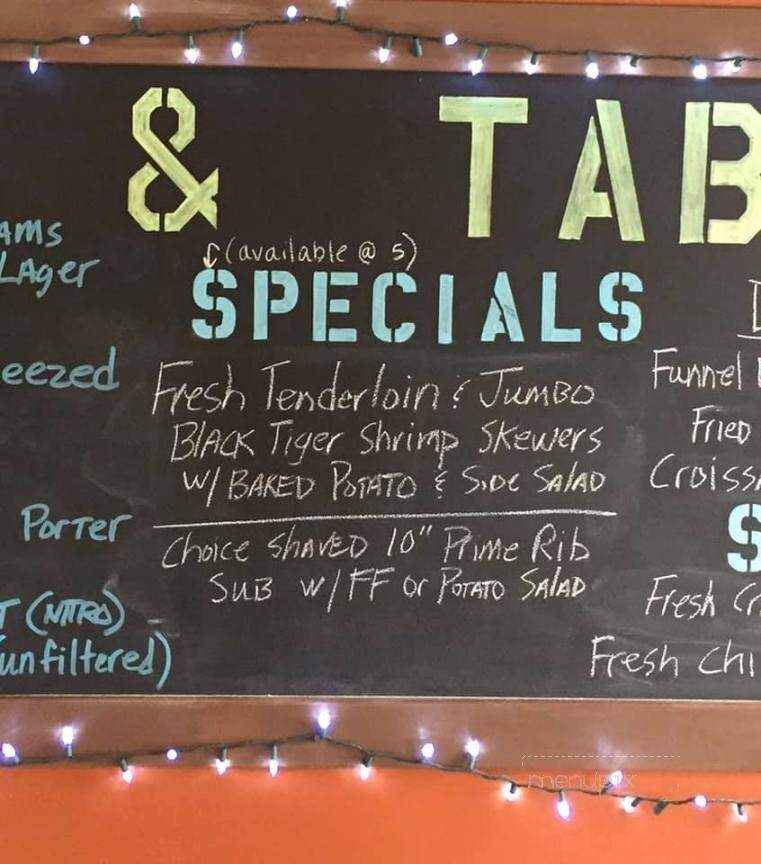 & TAB
AMS
LAger
eezed
Porter
T (NITRO)
unfiltered)
(available @ 5)
SPECIALS
Fresh Tenderloin & Jumbo
Black Tiger Shrimp Skewers
w/ Baked Potato & Side Salad
Choice Shaved 10" Prime Rib
Sub w/ FF or Potato Salad
Funnel
Fried
Croiss
S
Fresh Cr
Fresh Chi
menupix